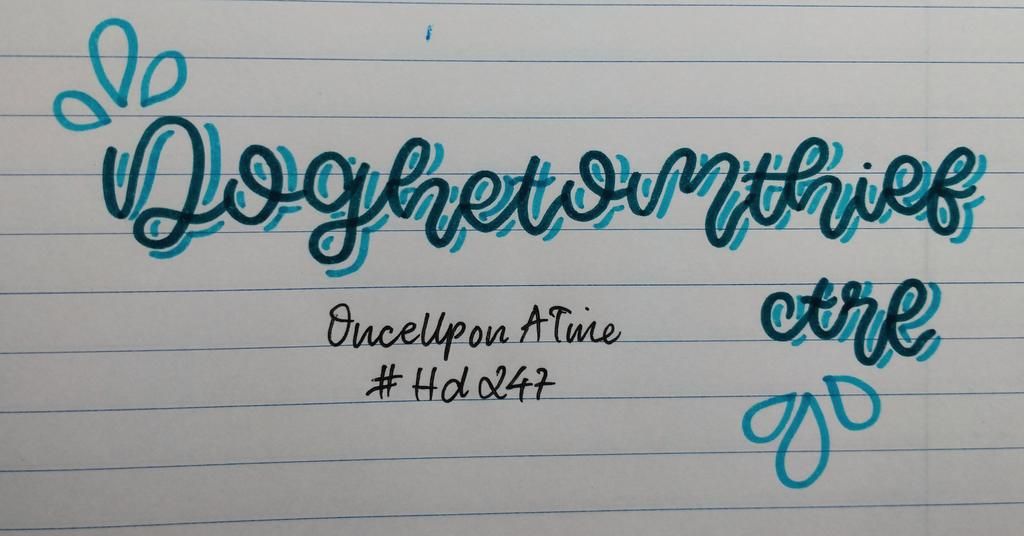 Doghetomthief
ctre
OnceUpon A Time
#Hd247